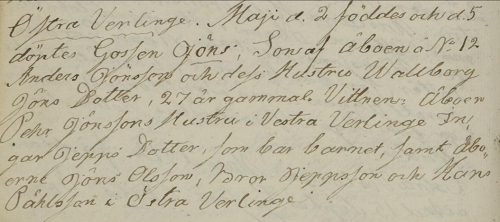 Östra Verlinge. Maji d. 2 föddes och d. 5
döptes Gossen Jöns, Son af Åboen å No 12
Anders Jönsson och dess Hustru Wallborg
Jöns Dotter, 27 år gammal. Vittnen: Åboen
Pehr Jönssons Hustru i Vestra Verlinge In,
gar Jeppsdotter, som bar barnet, samt åbo,
erne Jöns Olsson, Bror Jeppsson och Hans
Påhlsson i Östra Verlinge